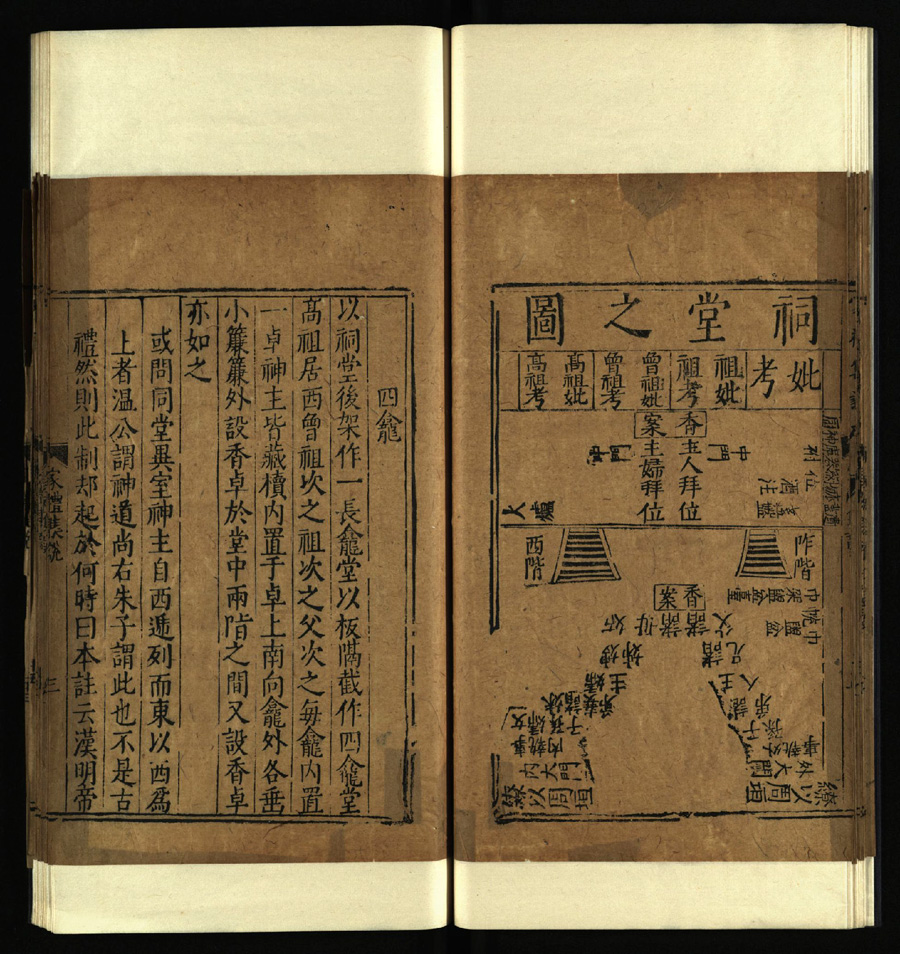 祠堂之圖
妣
考
祖妣
祖考
曾祖妣
曾祖考
高祖妣
高祖考
香案
主人拜位
主婦拜位
中門
阼階
西階
香案
諸父
諸兄
主人
諸弟
子孫
外執事
外大門
繚以周垣
主婦
內執事
內大門
繚以周垣
四龕
以祠堂後架作一長龕堂以板隔截作四龕堂
高祖居西曾祖次之祖次之父次之每龕內置
一卓神主皆藏櫝內置于卓上南向龕外各垂
小簾簾外設香卓於堂中兩階之間又設香卓
亦如之
或問同堂異室神主自西遞列而東以西爲
上者溫公謂神道尚右朱子謂此也不是古
禮然則此制却起於何時曰本註云漢明帝
三